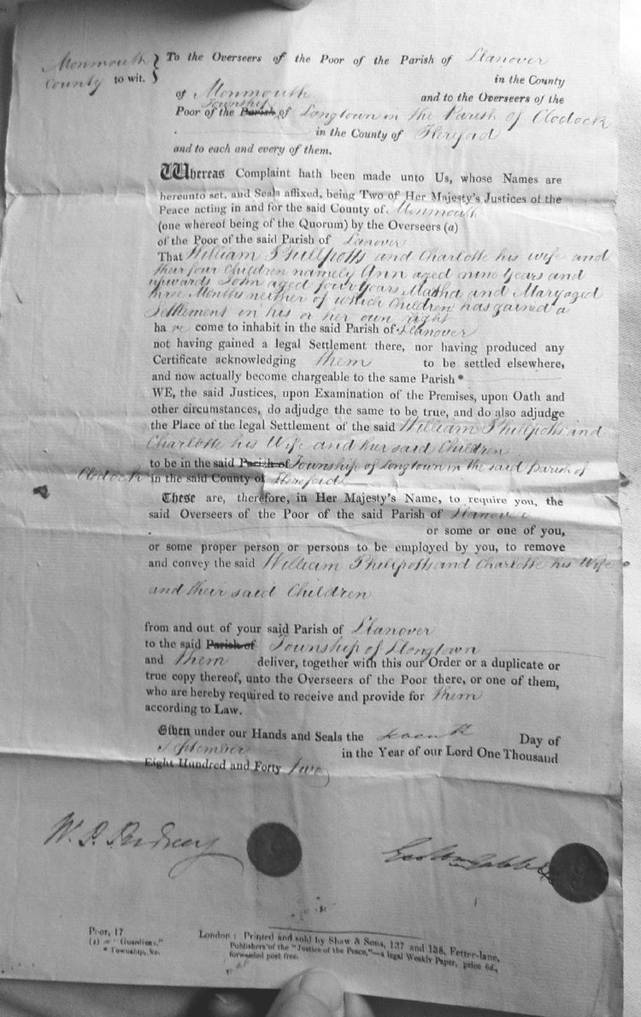 Monmouth County to wit. } To the Overseers of the Poor of the Parish of Llanover
in the County
of Monmouth and to the Overseers of the
Township
Poor of the Parish of Longtown in the Parish of Clodock
in the County of Hereford
and to each and every of them.
Whereas Complaint hath been made unto Us, whose Names are
hereunto set, and Seals affixed, being Two of Her Majesty's Justices of the
Peace acting in and for the said County of Monmouth
(one whereof being of the Quorum) by the Overseers (a)
of the Poor of the said Parish of Lanover
That William Phillpotts and Charlotte his wife and
their four Children namely Ann aged nine Years and
upwards John aged four years Martha and Mary aged
three Months neither of which Children has gained a
Settlement on his or her own right
ha ve come to inhabit in the said Parish of Llanover
not having gained a legal Settlement there, nor having produced any
Certificate acknowledging them to be settled elsewhere,
and now actually become chargeable to the same Parish *
WE, the said Justices, upon Examination of the Premises, upon Oath and
other circumstances, do adjudge the same to be true, and do also adjudge
the Place of the legal Settlement of the said William Philpotts and
Charlotte his Wife and their said Children
to be in the said Parish of Township of Longtown in the said parish of
Clodock in the said County of Hereford
These are, therefore, in Her Majesty's Name, to require you, the
said Overseers of the Poor of the said Parish of Llanover
or some or one of you,
or some proper person or persons to be employed by you, to remove
and convey the said William Philpotts and Charlotte his Wife
and their said Children
from and out of your said Parish of Llanover
to the said Parish of Township of Longtown
and them deliver, together with this our Order or a duplicate or
true copy thereof, unto the Overseers of the Poor there, or one of them,
who are hereby required to receive and provide for them
according to Law.
Given under our Hands and Seals the Day of
September in the Year of our Lord One Thousand
Eight Hundred and Forty two
Poor, 17
(a) or "Guardians."
* Township, &c.
London: Printed and sold by Shaw & Sons, 137 and 138, Fetter-lane,
Publishers of the "Justice of the Peace,"—a legal Weekly Paper, price 6d.,
forwarded post free.